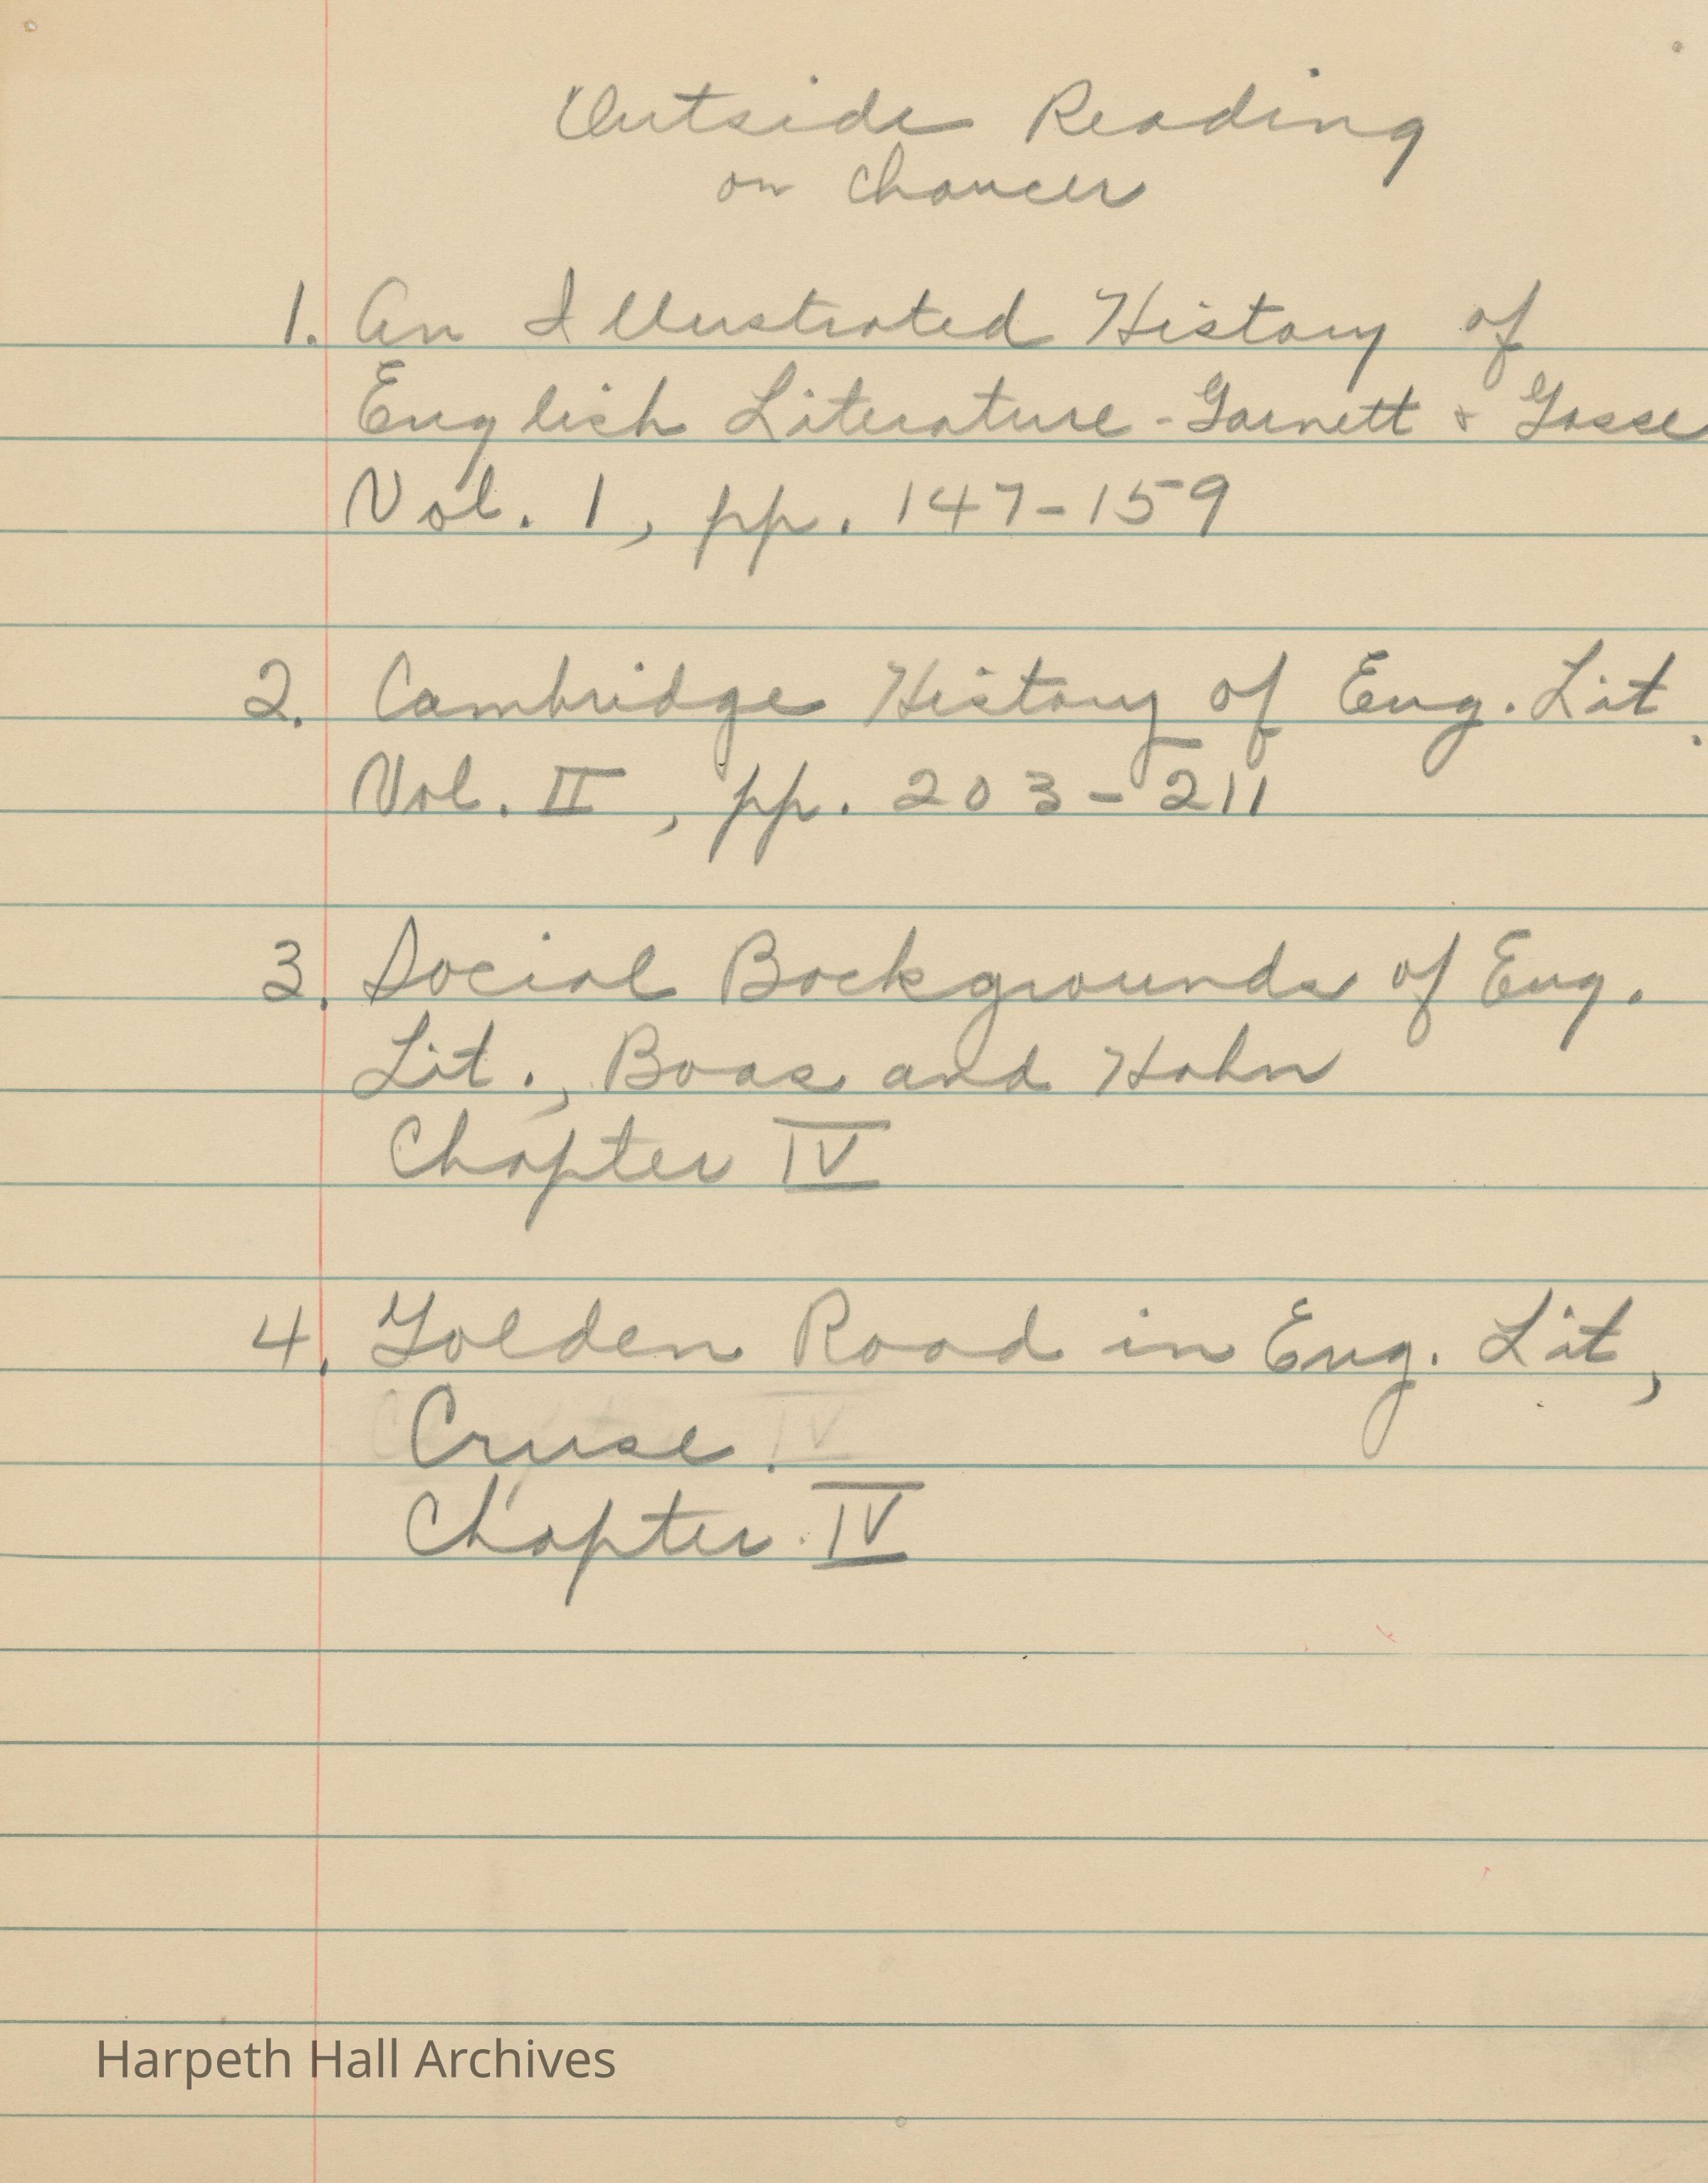 Outside Reading
on Chaucer
1. An Illustrated History of
English Literature - Garnett & Gosse
Vol. 1, pp. 147-159
2. Cambridge History of Eng. Lit.
Vol. II, pp. 203-211
3. Social Backgrounds of Eng.
Lit., Boas and Hahn
Chapter IV
4. Golden Road in Eng. Lit,
Cruse.
Chapter IV
Harpeth Hall Archives